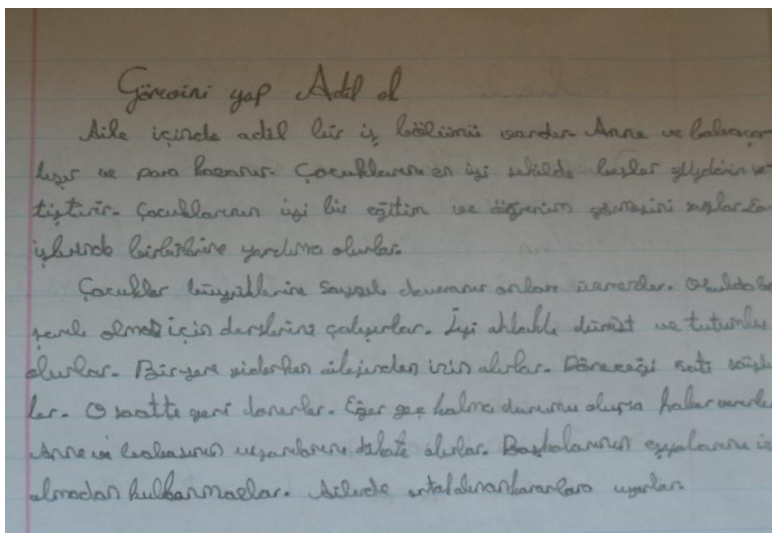 Görevini yap Adil ol
Aile içinde adil bir iş bölümü vardır. Anne ve baba ça
lışır ve para kazanır. Çocuklarını en iyi şekilde besler giydirir ye
tiştirir. Çocuklarının iyi bir eğitim ve öğrenim görmesini sağlar. Ev
işlerinde birbirine yardımcı olurlar.
Çocuklar büyüklerine saygılı davranır onları üzmezler. Okulda ba
şarılı olmak için derslerine çalışırlar. İyi ahlaklı dürüst ve tutumlu
olurlar. Bir yere giderken ailesinden izin alırlar. Döneceği saati söyler
ler. O saatte geri dönerler. Eğer geç kalma durumu olursa haber verirler
Anne ve babasının uyarılarını dikkate alırlar. Başkalarının eşyalarını iz
almadan kullanmazlar. Ailede ortak alınan kararlara uyarlar.